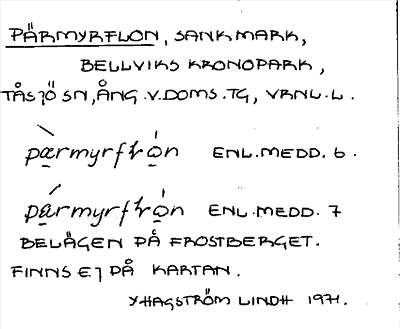 PÄRMYRFLON, SANKMARK,
BELLVIKS KRONOPARK,
TÅSJÖ SN, ÅNG.V.DOMS.TG, VRNL.L.
pærmyrfrón ENL.MEDD. 6.
pærmyrfrón ENL.MEDD. 7
BELÄGEN PÅ FROSTBERGET.
FINNS EJ PÅ KARTAN.
Y HAGSTRÖM LINDH 1971.